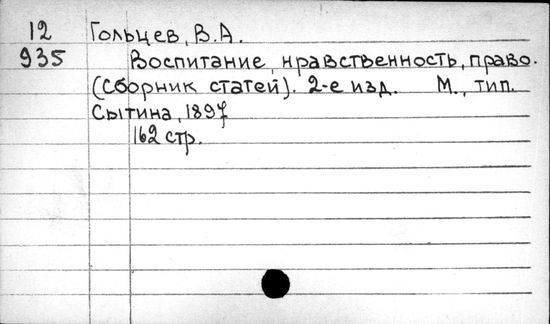 12 Гольцев, В.А.
935 Воспитание, нравственность, право.
(Сборник статей). 2-е изд. М., тип.
Сытина, 1897
162 стр.